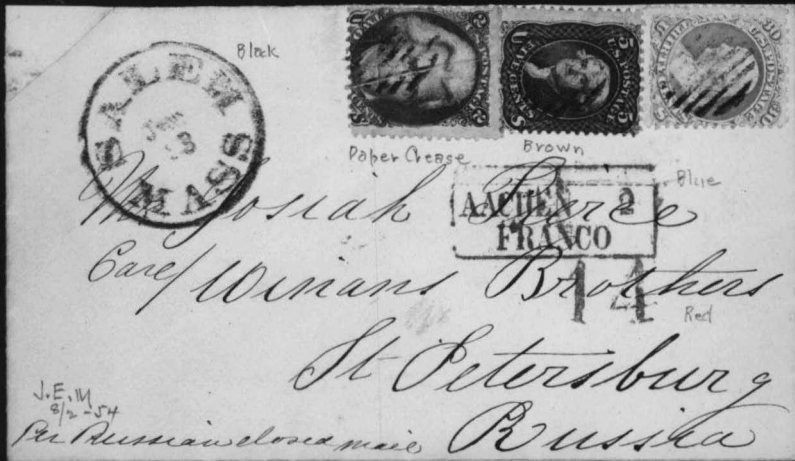 Black
SALEM MASS
U.S. POSTAGE
5 U 5
U.S. POSTAGE
30
U.S. POSTAGE
Paper Crease
Brown
Blue
AACHEN 2
FRANCO
Mr Josiah Pierce
Care/ Winans Brothers
14
Red
St Petersburg
Russia
J.E.M
8/2-54
Per Russian closed mail